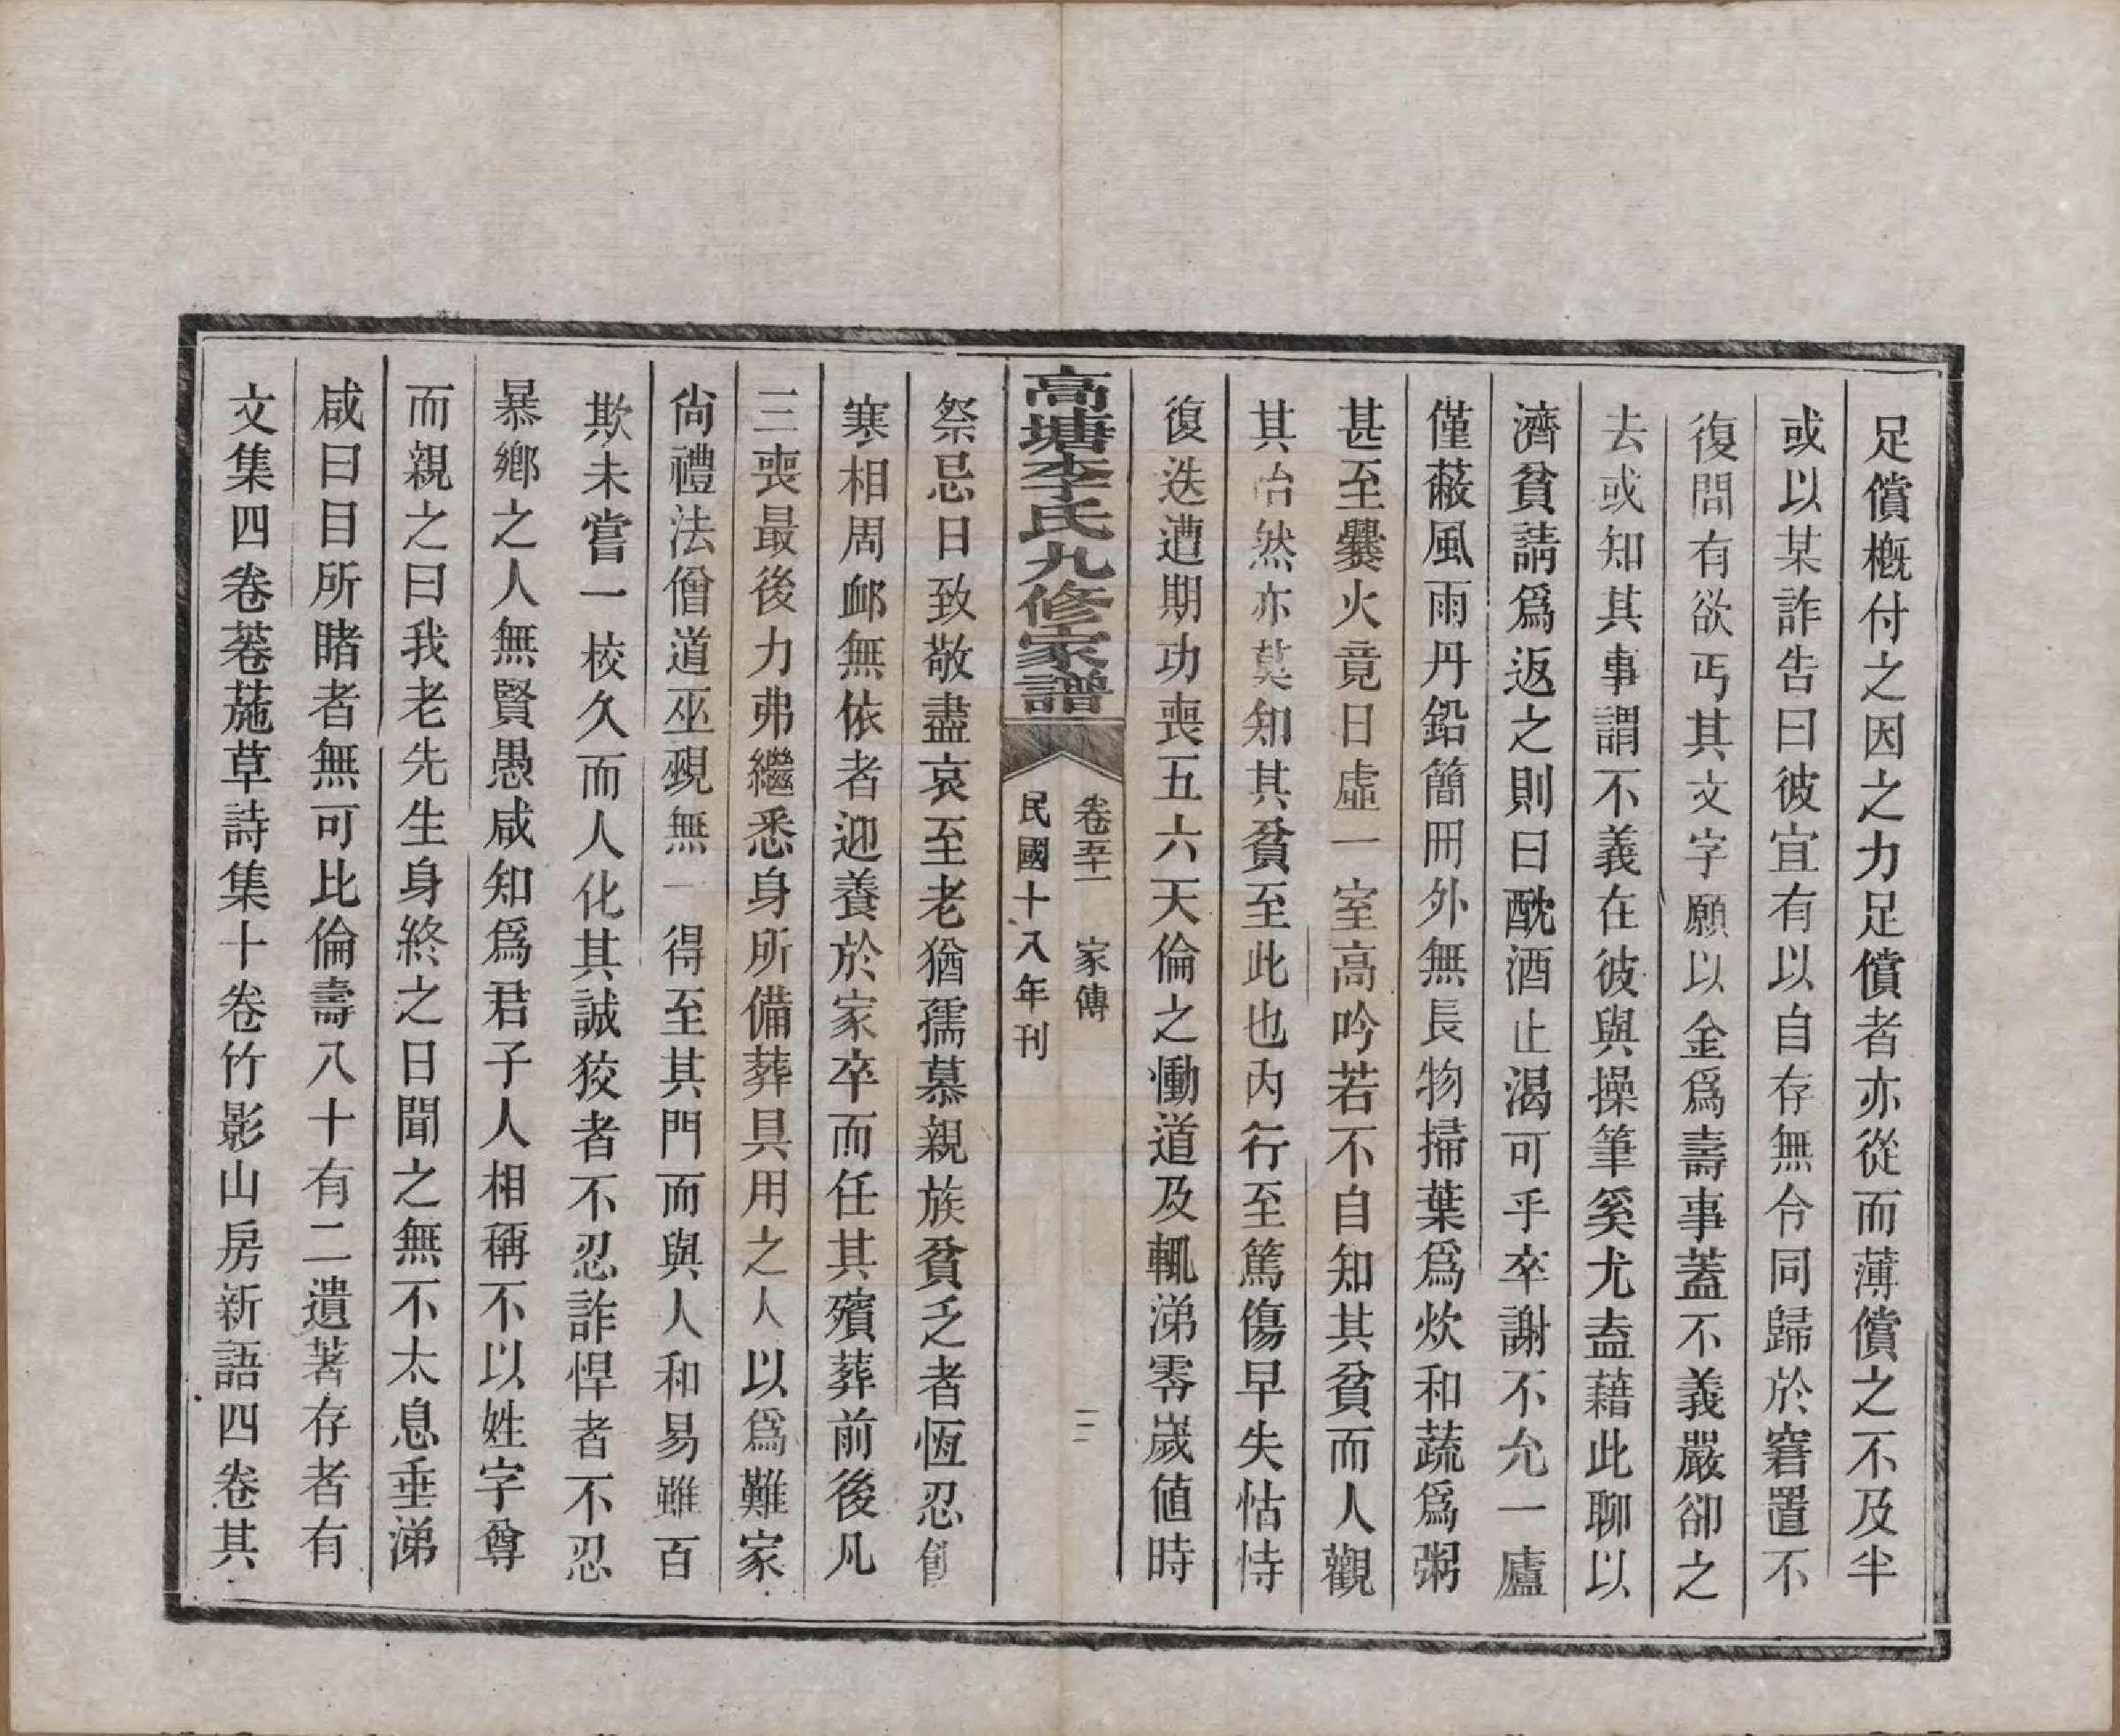 足償概付之因之力足償者亦從而薄償之不及半
或以某詐告曰彼宜有以自存無令同歸於窘置不
復問有欲丐其文字願以金爲壽事蓋不義嚴卻之
去或知其事謂不義在彼與操筆奚尤盍藉此聊以
濟貧請爲返之則曰酖酒止渴可乎卒謝不允一廬
僅蔽風雨丹鉛簡冊外無長物掃葉爲炊和蔬爲粥
甚至爨火竟日虛一室高吟若不自知其貧而人觀
其怡然亦莫知其貧至此也內行至篤傷早失怙恃
復迭遭期功喪五六天倫之慟道及輒涕零歲値時
高塘李氏九修家譜
卷五十一 家傳
三
民國十八年刊
祭忌日致敬盡哀至老猶孺慕親族貧乏者恆忍飢
寒相周卹無依者迎養於家卒而任其殯葬前後凡
三喪最後力弗繼悉身所備葬具用之人以爲難家
尙禮法僧道巫覡無一得至其門而與人和易雖百
欺未嘗一校久而人化其誠狡者不忍詐悍者不忍
暴鄉之人無賢愚咸知爲君子人相稱不以姓字尊
而親之曰我老先生身終之日聞之無不太息垂涕
咸曰目所睹者無可比倫壽八十有二遺著存者有
文集四卷菤葹草詩集十卷竹影山房新語四卷其